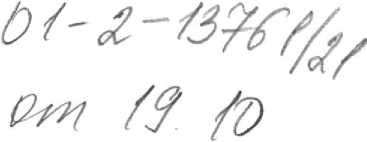 01-2-1376 р/21
от 19. 10